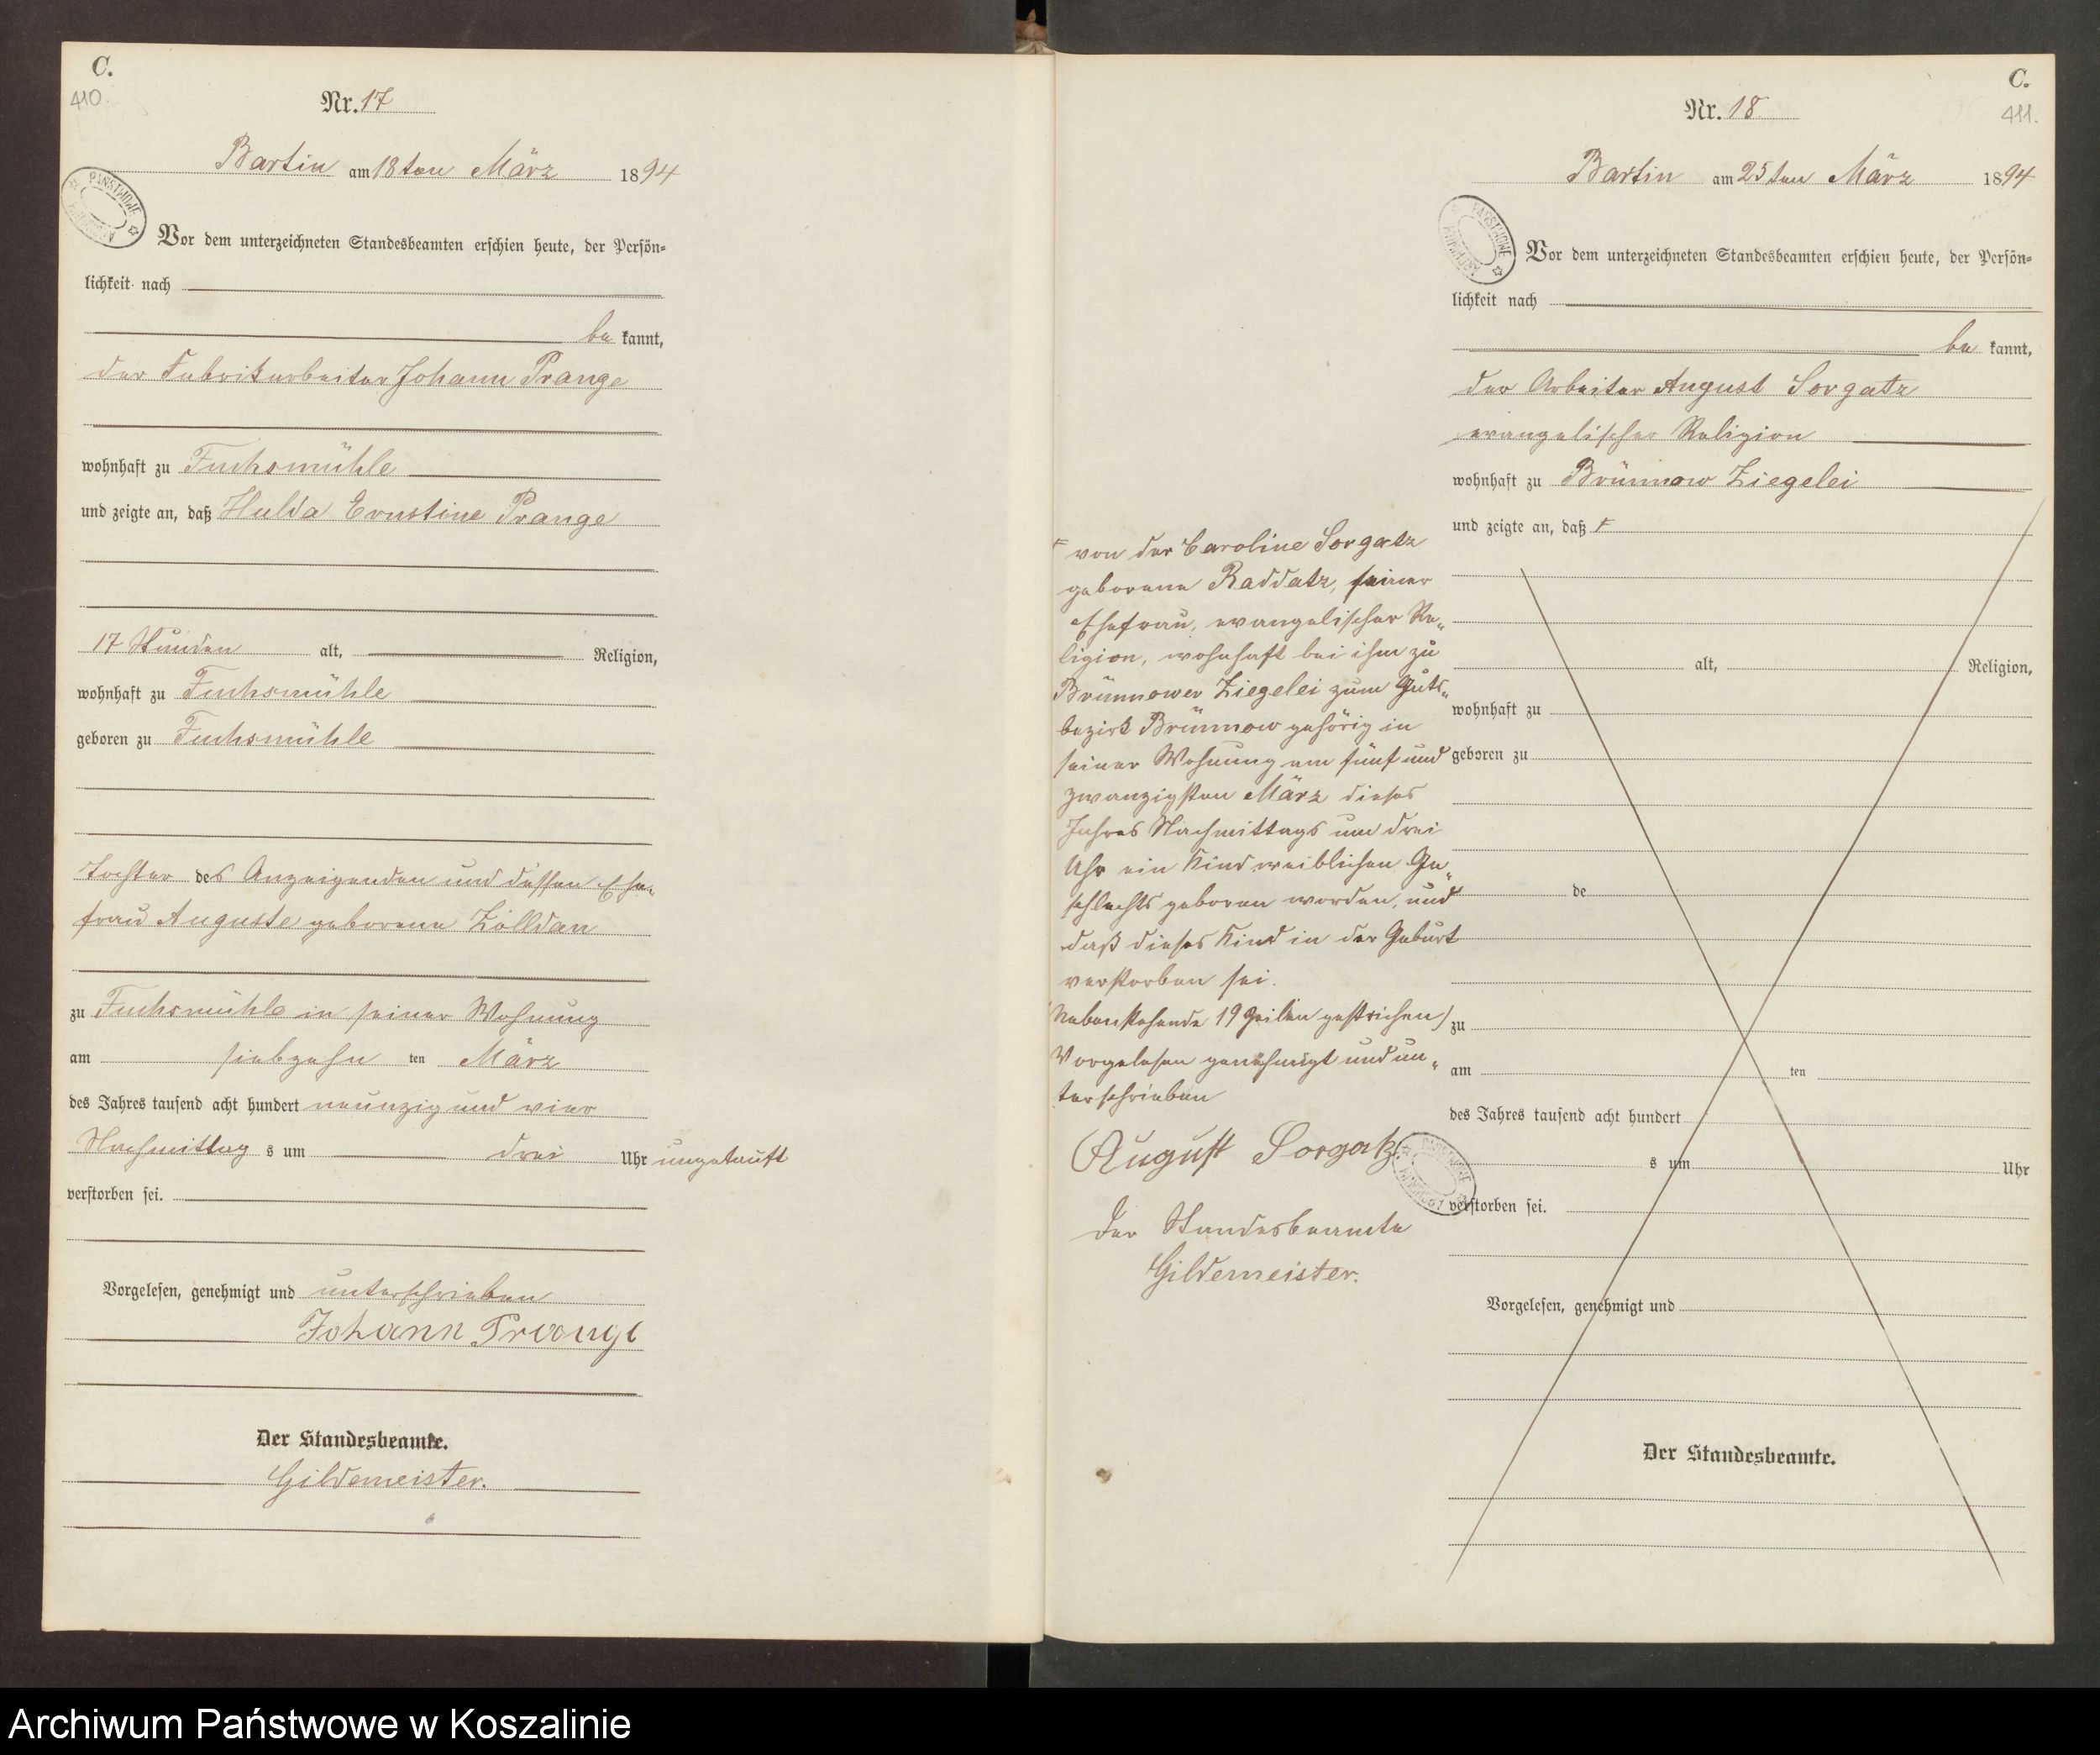 C.
410.
Nr. 17
Bartin am 18ten März 1894
PAŃSTWOWE
Vor dem unterzeichneten Standesbeamten erschien heute, der Persön-
lichkeit nach
be kannt,
der Fabrikarbeiter Johann Prange
wohnhaft zu Fuchsmühle
und zeigte an, daß Hulda Ernstine Prange
17 Stunden alt, Religion,
wohnhaft zu Fuchsmühle
geboren zu Fuchsmühle
Tochter des Anzeigenden und dessen Ehe-
frau Auguste geborene Zölldan
zu Fuchsmühle in seiner Wohnung
am siebzehn ten März
des Jahres tausend acht hundert neunzig und vier
Nachmittag s um drei Uhr ungetauft
verstorben sei.
Vorgelesen, genehmigt und unterschrieben
Johann Prange
Der Standesbeamte.
Gildemeister.
C.
411.
Nr. 18
Bartin am 25ten März 1894
PAŃSTWOWE
ARCHIWUM
Vor dem unterzeichneten Standesbeamten erschien heute, der Persön-
lichkeit nach
be kannt,
der Arbeiter August Sorgatz
evangelischer Religion
wohnhaft zu Brünnow Ziegelei
und zeigte an, daß
von der Caroline Sorgatz
geborene Raddatz, seiner
Ehefrau, evangelischer Re-
ligion, wohnhaft bei ihm zu
Brünnower Ziegelei zum Guts-
bezirk Brünnow gehörig in
seiner Wohnung am fünf und
zwanzigsten März dieses
Jahres Nachmittags um drei
Uhr ein Kind weiblichen Ge-
schlechts geboren worden, und
daß dieses Kind in der Geburt
verstorben sei.
Nebenstehende 19 Zeilen gestrichen)
Vorgelesen genehmigt und un-
terschrieben
August Sorgatz.
PAŃSTWOWE
ARCHIWUM
Der Standesbeamte
Gildemeister.
alt, Religion,
wohnhaft zu
geboren zu
de
zu
am ten
des Jahres tausend acht hundert
s um Uhr
verstorben sei.
Vorgelesen, genehmigt und
Der Standesbeamte.
Archiwum Państwowe w Koszalinie